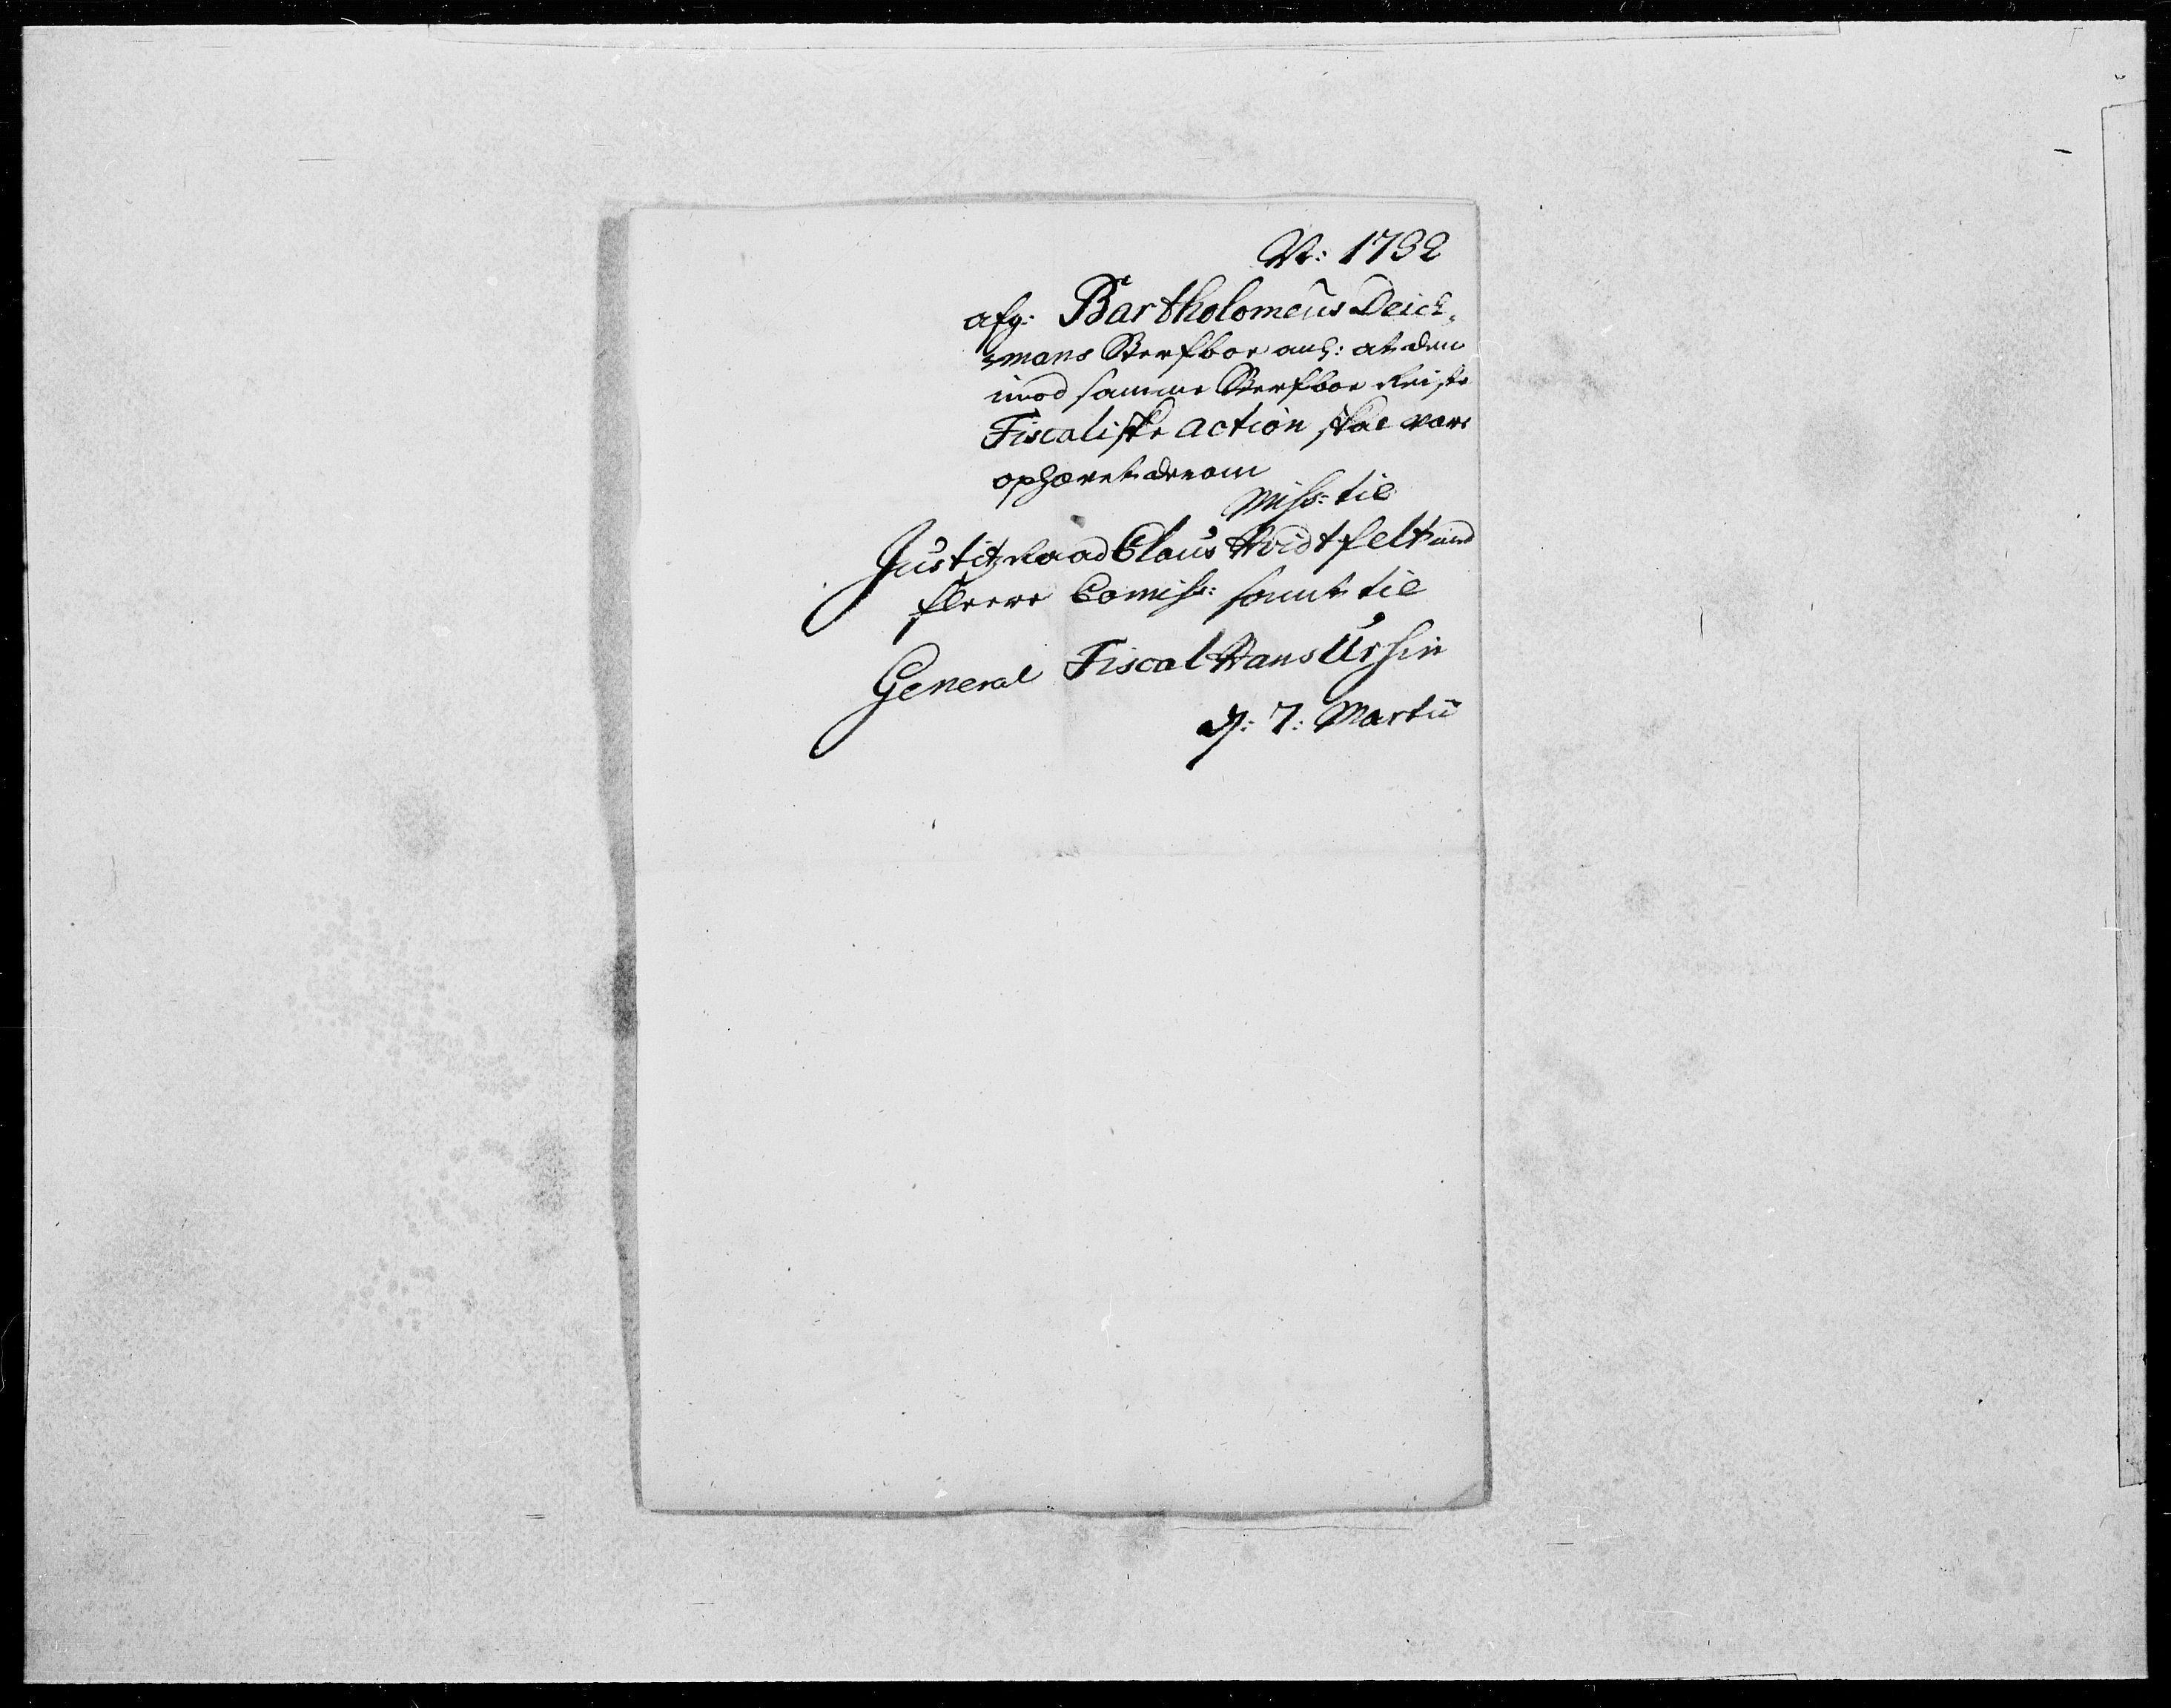 A: 1732
afg: Bartholomeus Deich-
mans Sterfboe ang: at den
imod samme Sterfboe Reiste
Fiscaliske action skal være
ophævet derom
Miss: til
Justitzraad Claus Hvidtfelt med
fleere Comiss: samt til
General Fiscal Hans Ursin
d: 7: Martii